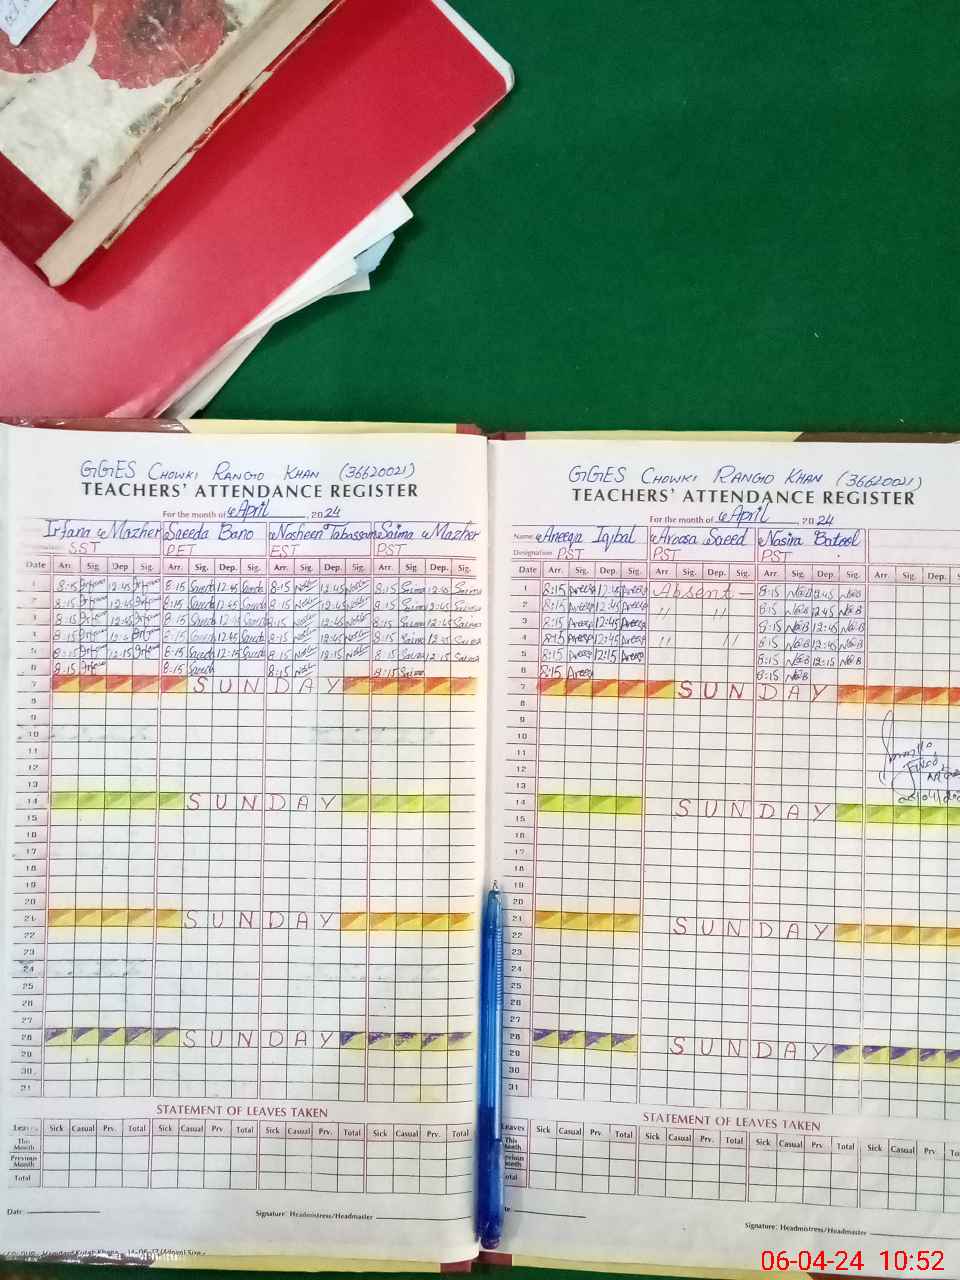 GGES CHOWKI RANGO KHAN (36620021)
TEACHERS' ATTENDANCE REGISTER
For the month of April, 2024
Irfana Mazher Saeeda Bano Nosheen Tabassam Saima Mazher
SST PET EST PST
Date Arr. Sig. Dep. Sig. Arr. Sig. Dep. Sig. Arr. Sig. Dep. Sig. Arr. Sig. Dep. Sig.
1 8:15 12:45 8:15 Saeeda 12:45 Saeeda 8:15 12:45 8:15 Saima 12:45 Saima
2 8:15 12:45 8:15 Saeeda 12:45 Saeeda 8:15 12:45 8:15 Saima 12:45 Saima
3 8:15 12:45 8:15 Saeeda 12:45 Saeeda 8:15 12:45 8:15 Saima 12:45 Saima
4 8:15 12:45 8:15 Saeeda 12:45 Saeeda 8:15 12:45 8:15 Saima 12:45 Saima
5 8:15 12:15 8:15 Saeeda 12:15 Saeeda 8:15 12:15 8:15 Saima 12:15 Saima
6 8:15 8:15 Saeeda 8:15 8:15 Saima
7 SUNDAY
8
9
10
11
12
13
14 SUNDAY
15
16
17
18
19
20
21 SUNDAY
22
23
24
25
26
27
28 SUNDAY
29
30
31
STATEMENT OF LEAVES TAKEN
Leaves Sick Casual Prv. Total Sick Casual Prv. Total Sick Casual Prv. Total Sick Casual Prv. Total
This Month
Previous Month
Total
Date:
Signature: Headmistress/Headmaster
GGES CHOWKI RANGO KHAN (36620021)
TEACHERS' ATTENDANCE REGISTER
For the month of April, 2024
Name Aneeqa Iqbal Aroosa Saeed Nasira Batool
Designation PST PST PST
Date Arr. Sig. Dep. Sig. Arr. Sig. Dep. Sig. Arr. Sig. Dep. Sig. Arr. Sig. Dep.
1 8:15 Aneeqa 12:45 Aneeqa Absent — 8:15 N@B 12:45 N@B
2 8:15 Aneeqa 12:45 Aneeqa " " 8:15 N@B 12:45 N@B
3 8:15 Aneeqa 12:45 Aneeqa 8:15 N@B 12:45 N@B
4 8:15 Aneeqa 12:45 Aneeqa " " 8:15 N@B 12:45 N@B
5 8:15 Aneeqa 12:15 Aneeqa 8:15 N@B 12:15 N@B
6 8:15 Aneeqa 8:15 N@B
7 SUNDAY
8
9
10
11
12
13
14 SUNDAY
15
16
17
18
19
20
21 SUNDAY
22
23
24
25
26
27
28 SUNDAY
29
30
31
STATEMENT OF LEAVES TAKEN
Leaves Sick Casual Prv. Total Sick Casual Prv. Total Sick Casual Prv. Total Sick Casual Prv.
This Month
Previous Month
Total
Signature: Headmistress/Headmaster
06-04-24 10:52